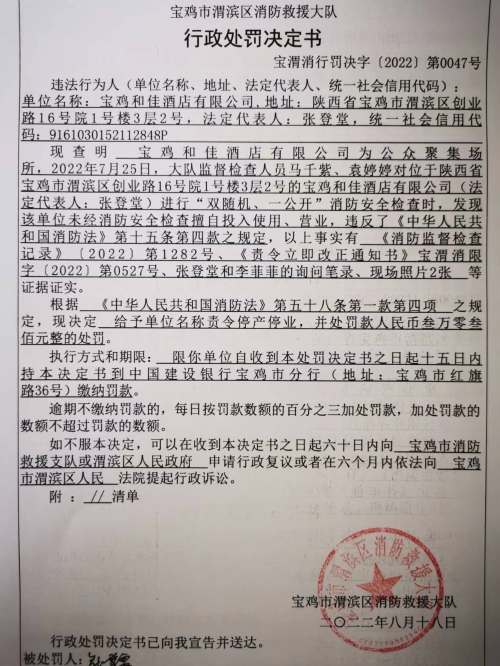 宝鸡市渭滨区消防救援大队
行政处罚决定书
宝渭消行罚决字〔2022〕第0047号
违法行为人（单位名称、地址、法定代表人、统一社会信用代码）：
单位名称：宝鸡和佳酒店有限公司,地址：陕西省宝鸡市渭滨区创业
路16号院1号楼3层2号，法定代表人：张登堂，统一社会信用代
码：9161030152112848P
现查明 宝鸡和佳酒店有限公司为公众聚集场
所，2022年7月25日，大队监督检查人员马千紫、袁婷婷对位于陕西省
宝鸡市渭滨区创业路16号院1号楼3层2号的宝鸡和佳酒店有限公司（法
定代表人：张登堂）进行“双随机、一公开”消防安全检查时，发现
该单位未经消防安全检查擅自投入使用、营业，违反了《中华人民共
和国消防法》第十五条第四款之规定，以上事实有 《消防监督检查
记录》〔2022〕第1282号、《责令立即改正通知书》宝渭消限
字〔2022〕第0527号、张登堂和李菲菲的询问笔录、现场照片2张 等
证据证实。
根据 《中华人民共和国消防法》第五十八条第一款第四项 之规
定，现决定 给予单位名称责令停产停业，并处罚款人民币叁万零叁
佰元整的处罚。
执行方式和期限：限你单位自收到本处罚决定书之日起十五日内
持本决定书到中国建设银行宝鸡市分行（地址：宝鸡市红旗
路36号）缴纳罚款。
逾期不缴纳罚款的，每日按罚款数额的百分之三加处罚款，加处罚款的
数额不超过罚款的数额。
如不服本决定，可以在收到本决定书之日起六十日内向 宝鸡市消防
救援支队或渭滨区人民政府 申请行政复议或者在六个月内依法向 宝鸡
市渭滨区人民 法院提起行政诉讼。
附：//清单
宝鸡市渭滨区消防救援大队
宝鸡市渭滨区消防救援大队
二〇二二年八月十八日
行政处罚决定书已向我宣告并送达。
被处罚人：